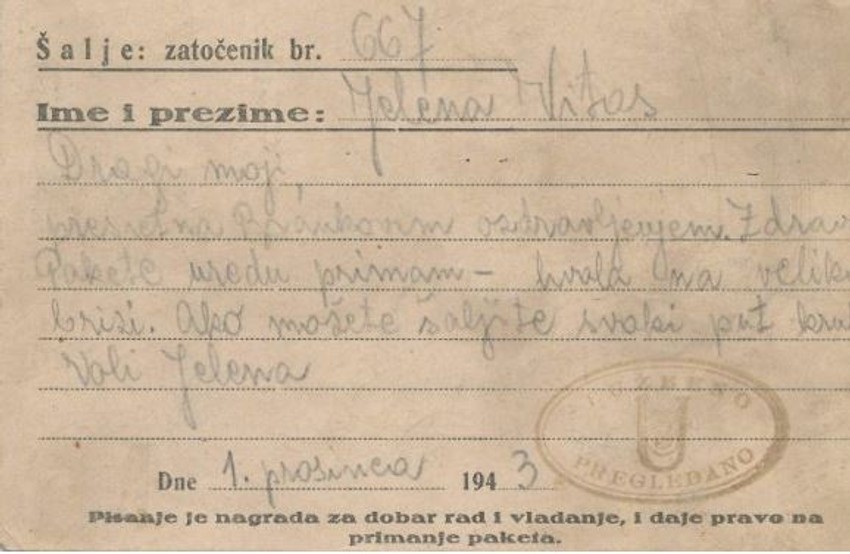 Šalje: zatočenik br. 667
Ime i prezime: Jelena Vitas
Dragi moji,
presretna Brankovim ozdravljenjem. Zdrav
Pakete uredu primam – hvala na velik
brizi. Ako možete šaljite svaki put kru
Voli Jelena
SLUŽBENO
U
PREGLEDANO
Dne 1. prosinca 1943
Pisanje je nagrada za dobar rad i vladanje, i daje pravo na
primanje paketa.